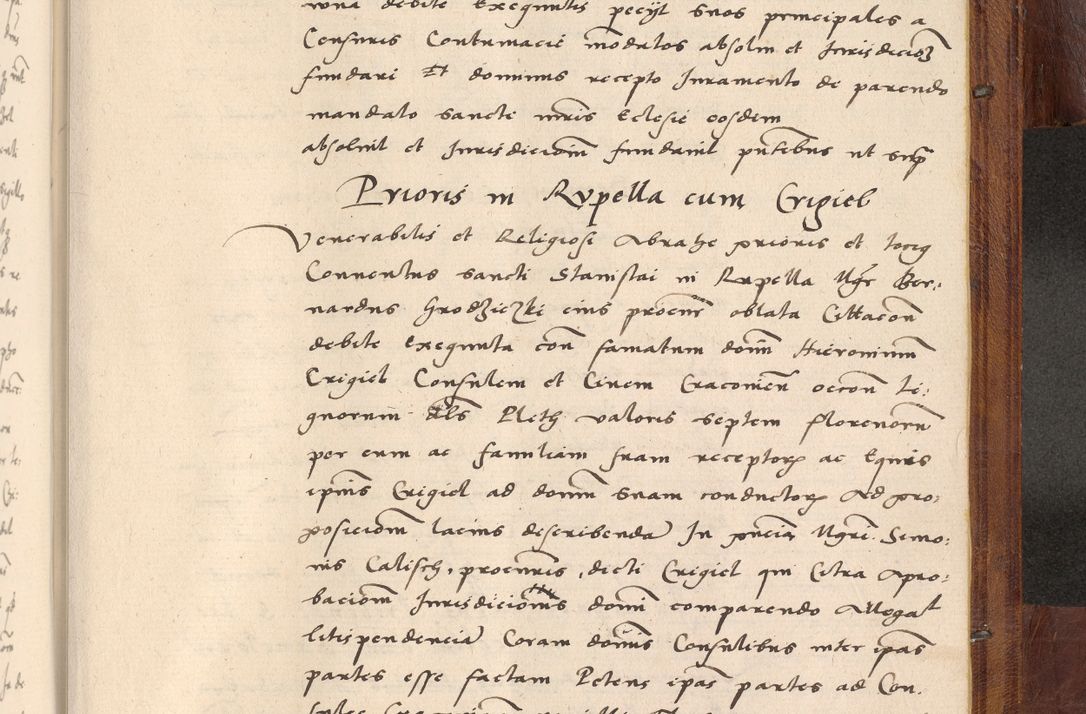 debite Exequutis peciit suos principales a
Censuris Contumacie modulos absolui et Jurisdicioẽ
fundari Et dominus recepto Juramento de parendo
mandato sancte mris Eclesie eosdem
absoluit et Jurisdicionm fundauit pntibus ut supr
Prioris in Rupella cum Crigiel
Venerabilis et Religiosi Abrahe prioris et tociq
Conuentus sancti Stanislai in Rupella Mgr Ber:
nardus Grodzieczki eius procur oblata Cittacon
debite exequuta con famatum domi Hieronimum
Crigiel Consulem et Ciuem Cracouien occon Li:
gnorum als Pleth valoris septem florenorum
per eum ac familiam suam receptorum ac Equis
ipius Crigiel ad domum suam conductorum Ad pro:
posicionm lacius describenda In pncia Mgri Simo:
nis Calisch procuris dicti Crigiel qui Citra Apro:
bacionm Jurisdicionis domi comparendo Allegat
litispendencia Coram domis Consulibus inter ipas
partes esse factam Petens ipas partes ad Con.